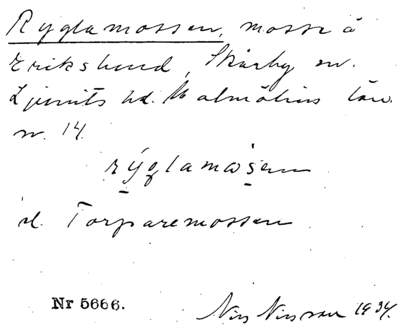 Ryglamossen, mosse å
Erikslund, Skårby sn.
Ljunits hd. Malmöhus län
nr. 14.
rýglamåsen
el. Torparemossen
Nr 5666. Nils Nilsson 1934.